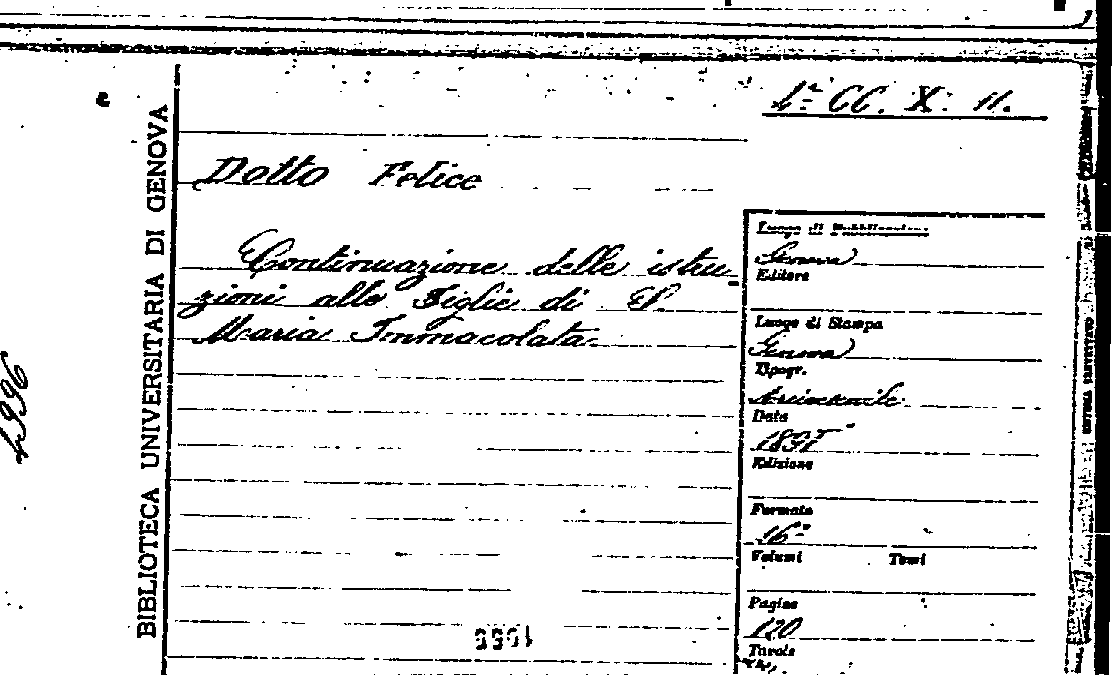 1ª CC. X. 11.
BIBLIOTECA UNIVERSITARIA DI GENOVA
Dotto Felice
Continuazione delle istru-
zioni alle Figlie di S.
Maria Immacolata.
Luogo di Pubblicazione
Genova
Editore
Luogo di Stampa
Genova
Tipogr.
Data
Edizione
Formato
16º
Volumi Tomi
Pagine
120
Tavole
1996